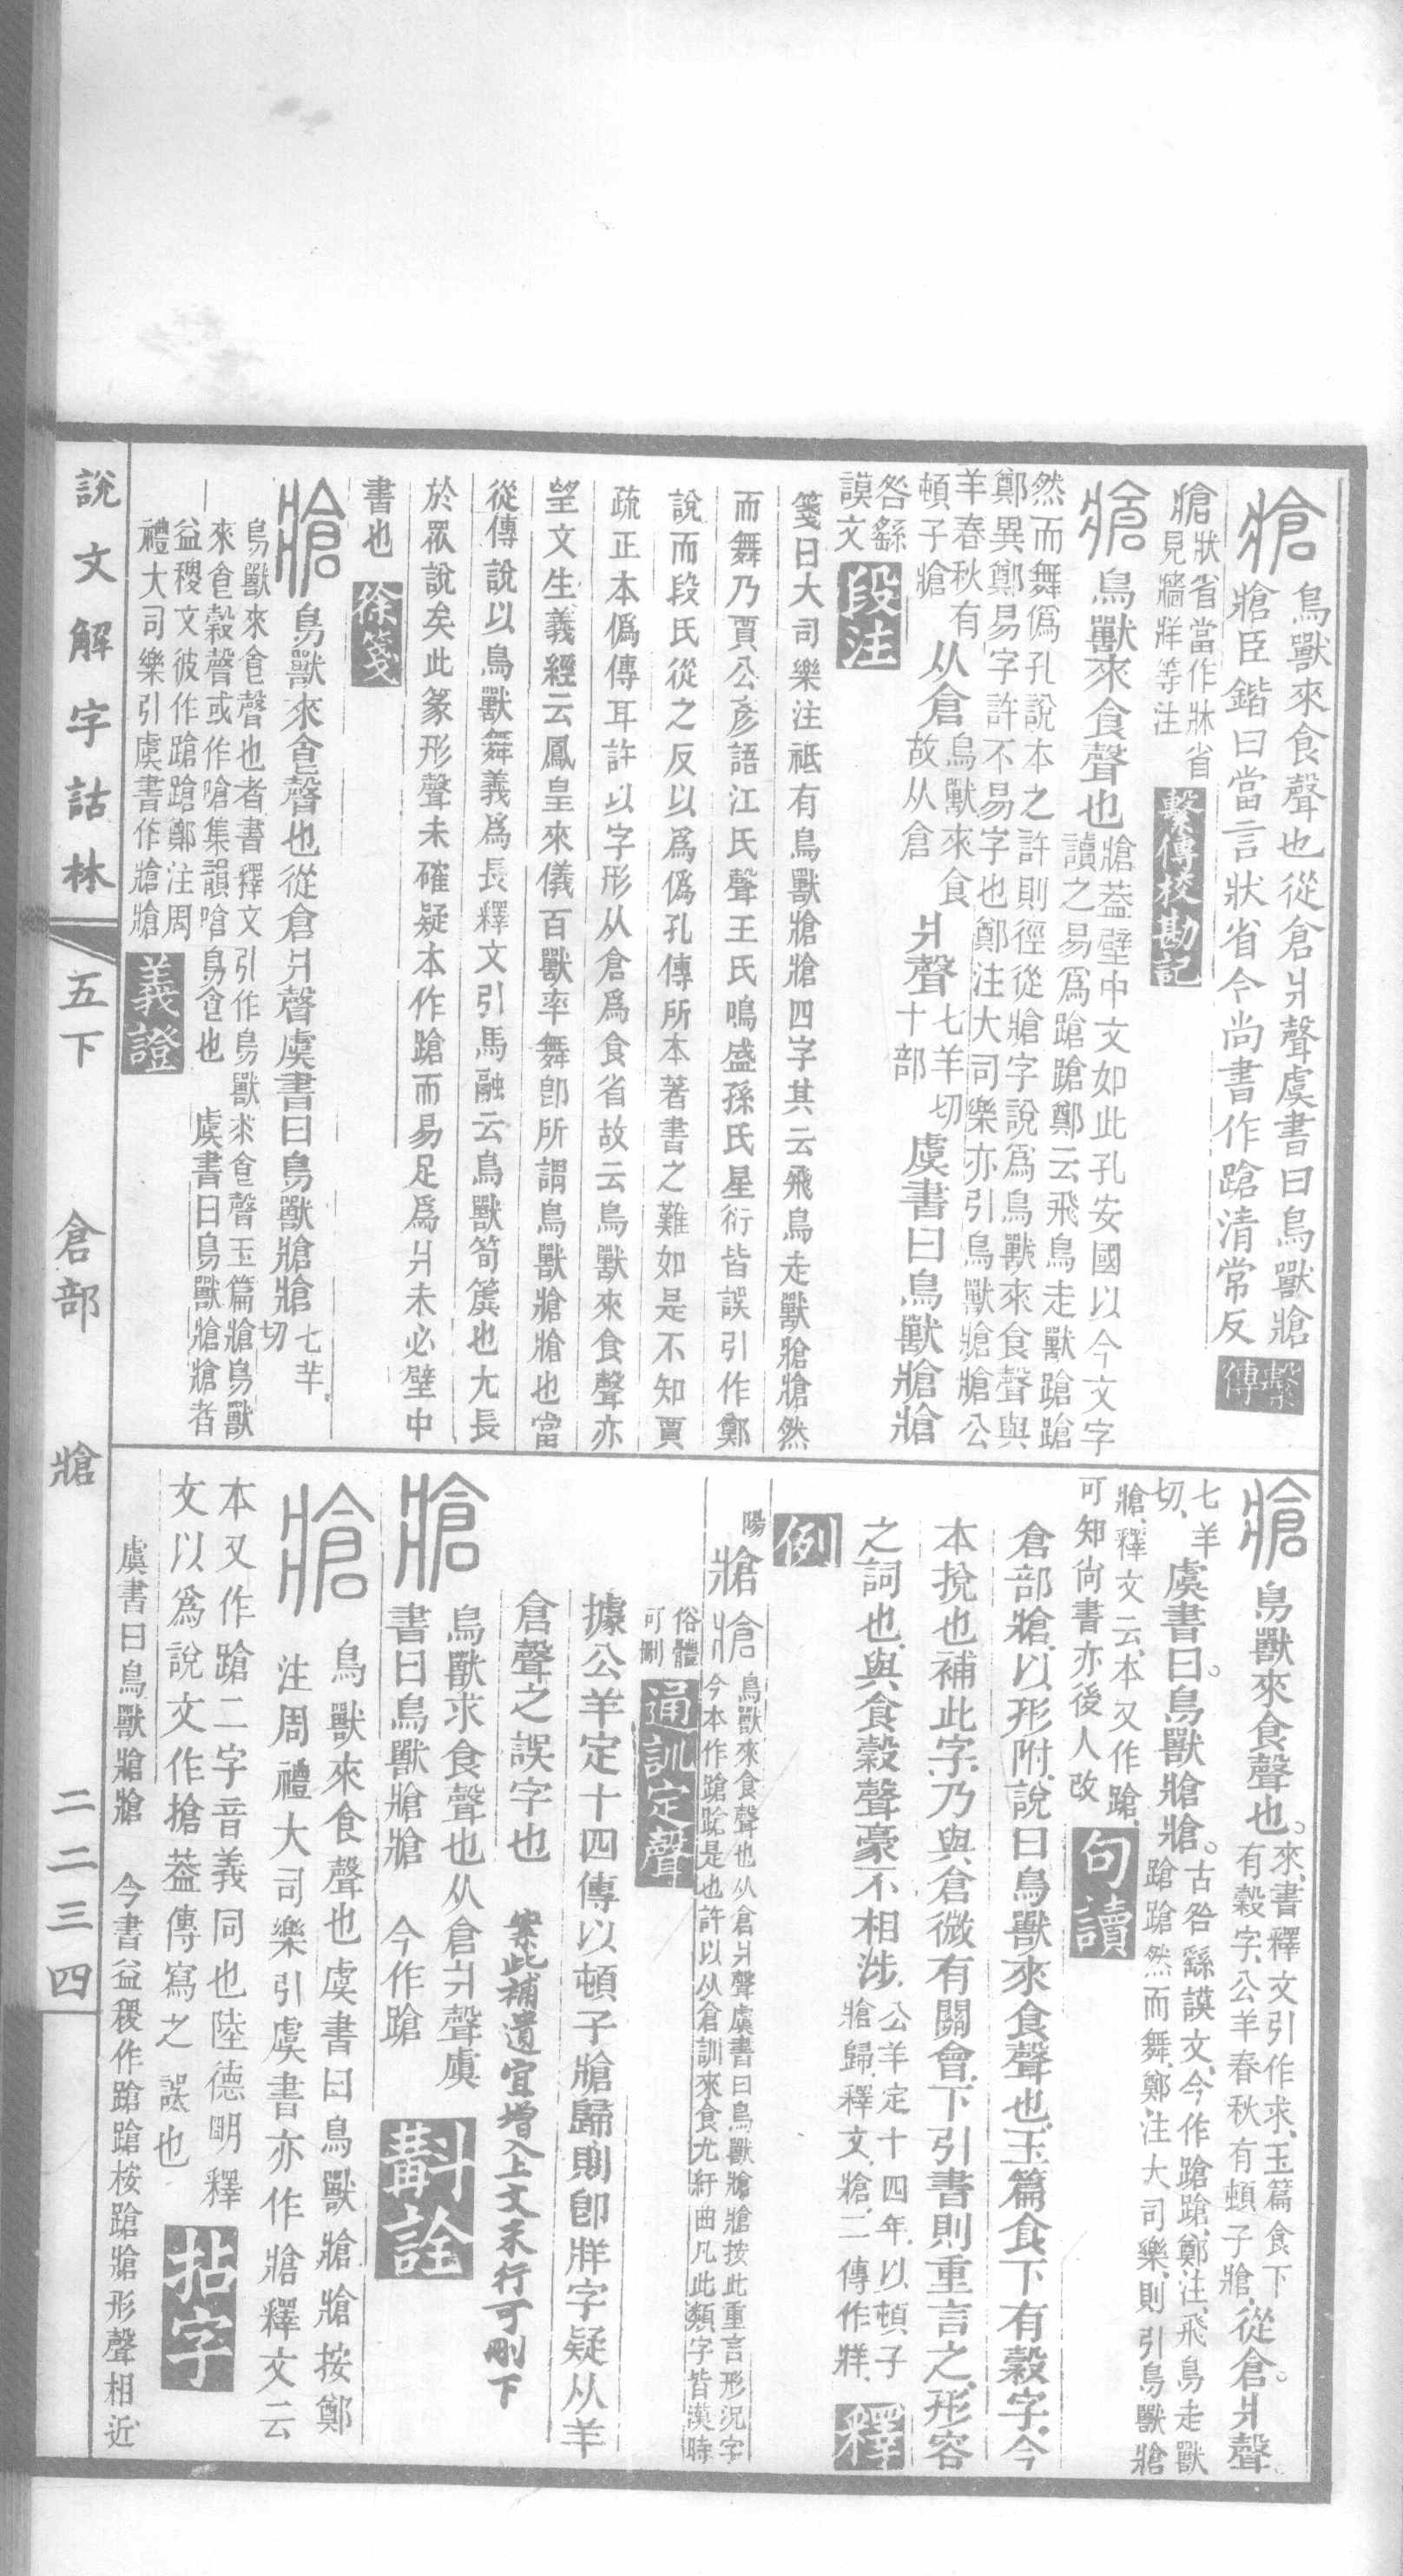 牄 鳥獸來食聲也從倉爿聲虞書曰鳥獸牄
牄臣鍇曰當言狀省今尚書作蹌清常反 繫傳
牄狀省當作牀省
見牆牂等注 繫傳校勘記
牄 鳥獸來食聲也 牄葢壁中文如此孔安國以今文字
讀之易爲蹌蹌鄭云飛鳥走獸蹌蹌
然而舞僞孔說本之許則徑從牄字說爲鳥獸來食聲與
鄭異鄭易字許不易字也鄭注大司樂亦引鳥獸牄牄公
羊春秋有
頓子牄 从倉 鳥獸來食
故从倉 爿聲 七羊切
十部 虞書曰鳥獸牄牄
咎繇
謨文 段注
箋曰大司樂注祗有鳥獸牄牄四字其云飛鳥走獸牄牄然
而舞乃賈公彥語江氏聲王氏鳴盛孫氏星衍皆誤引作鄭
說而段氏從之反以爲僞孔傳所本著書之難如是不知賈
疏正本僞傳耳許以字形从倉爲食省故云鳥獸來食聲亦
望文生義經云鳳皇來儀百獸率舞卽所謂鳥獸牄牄也當
從傳說以鳥獸舞義爲長釋文引馬融云鳥獸筍簴也尤長
於眾說矣此篆形聲未確疑本作蹌而易足爲爿未必壁中
書也 徐箋
牄 鳥獸來食聲也從倉爿聲虞書曰鳥獸牄牄 七羊
切
鳥獸來食聲也者書釋文引作鳥獸求食聲玉篇牄鳥獸
來食穀聲或作嗆集韻嗆鳥食也 虞書曰鳥獸牄牄者
益稷文彼作蹌蹌鄭注周
禮大司樂引虞書作牄牄 義證
說文解字詁林 五下 倉部 牄 二二三四
牄 鳥獸來食聲也。來、書釋文引作求、玉篇食下
有穀字、公羊春秋有頓子牄、從倉。爿聲。
七羊
切、虞書曰。鳥獸牄牄。古咎繇謨文、今作蹌蹌、鄭注、飛鳥走獸
蹌蹌然而舞、鄭注大司樂、則引鳥獸牄
牄、釋文云、本又作蹌、
可知尙書亦後人改 句讀
倉部牄、以形附、說曰鳥獸來食聲也、玉篇食下有穀字、今
本捝也、補此字、乃與倉微有關會、下引書則重言之、形容
之詞也、與食穀聲豪不相涉、公羊定十四年、以頓子
牄歸、釋文、牄、二傳作牂、 釋
例
陽
牄 鳥獸來食聲也从倉爿聲虞書曰鳥獸牄牄按此重言形況字
今本作蹌蹌是也許以从倉訓來食尤紆曲凡此類字皆漢時
俗體
可刪 通訓定聲
據公羊定十四傳以頓子牄歸則卽牂字疑从羊
倉聲之誤字也 案此補遺宜增入上文末行可刪下
牄 鳥獸求食聲也从倉爿聲虞
書曰鳥獸牄牄 今作蹌 斠詮
牄 鳥獸來食聲也虞書曰鳥獸牄牄按鄭
注周禮大司樂引虞書亦作牄釋文云
本又作蹌二字音義同也陸德明釋
文以爲說文作搶葢傳寫之誤也 拈字
虞書曰鳥獸牄牄 今書益稷作蹌蹌按蹌牄形聲相近